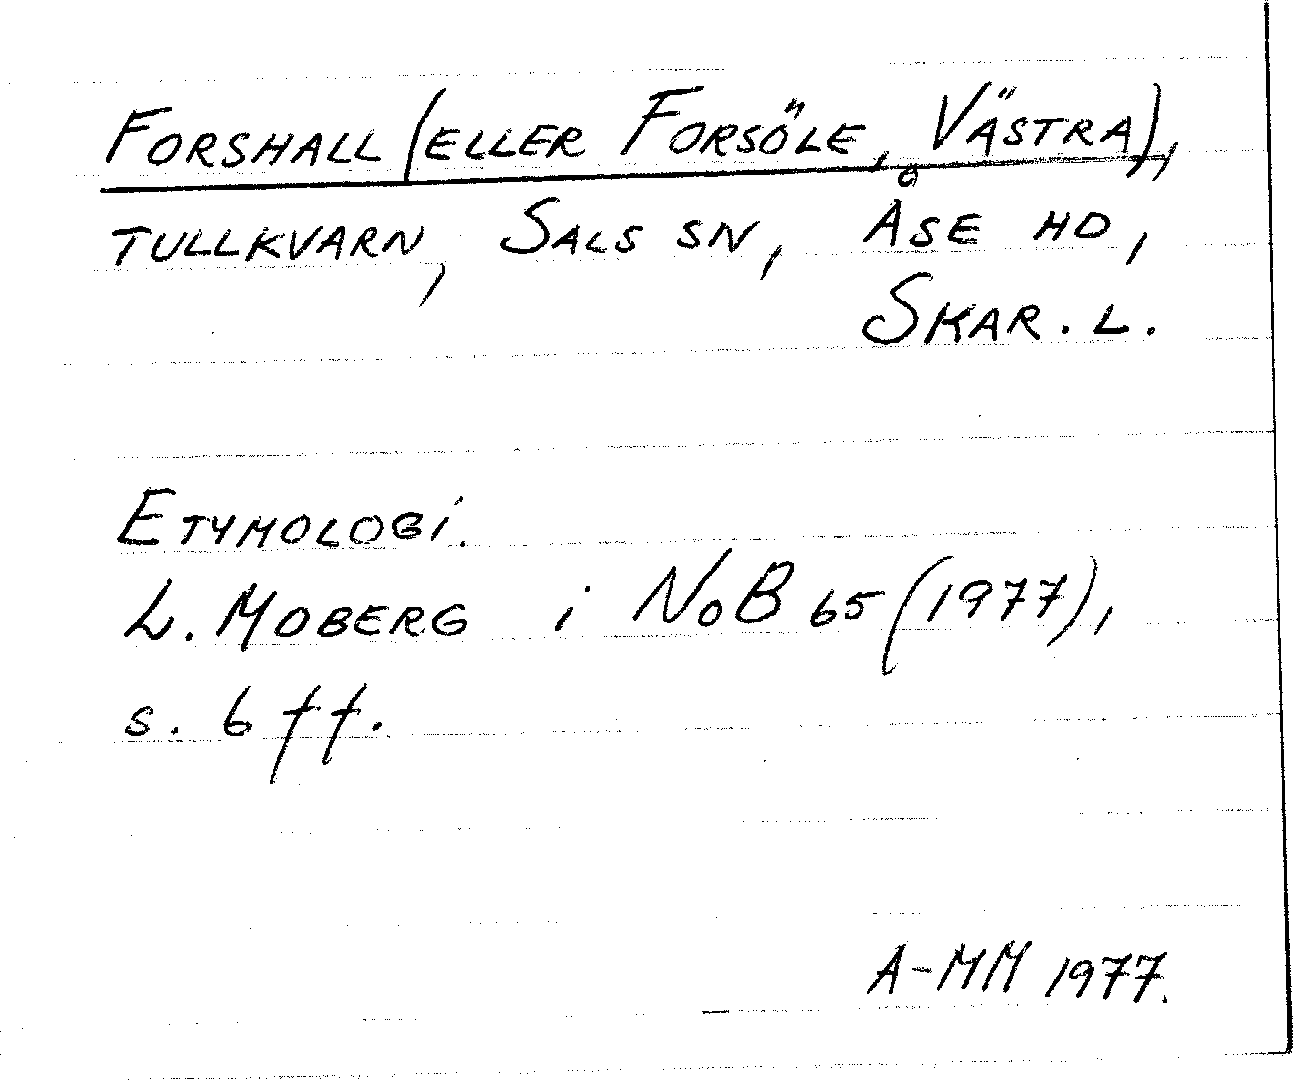 FORSHALL (ELLER FORSÖLE, VÄSTRA),
TULLKVARN, SALS SN, ÅSE HD,
SKAR. L.
ETYMOLOGI.
L. MOBERG i NoB 65 (1977),
s. 6 ff.
A-MM 1977.